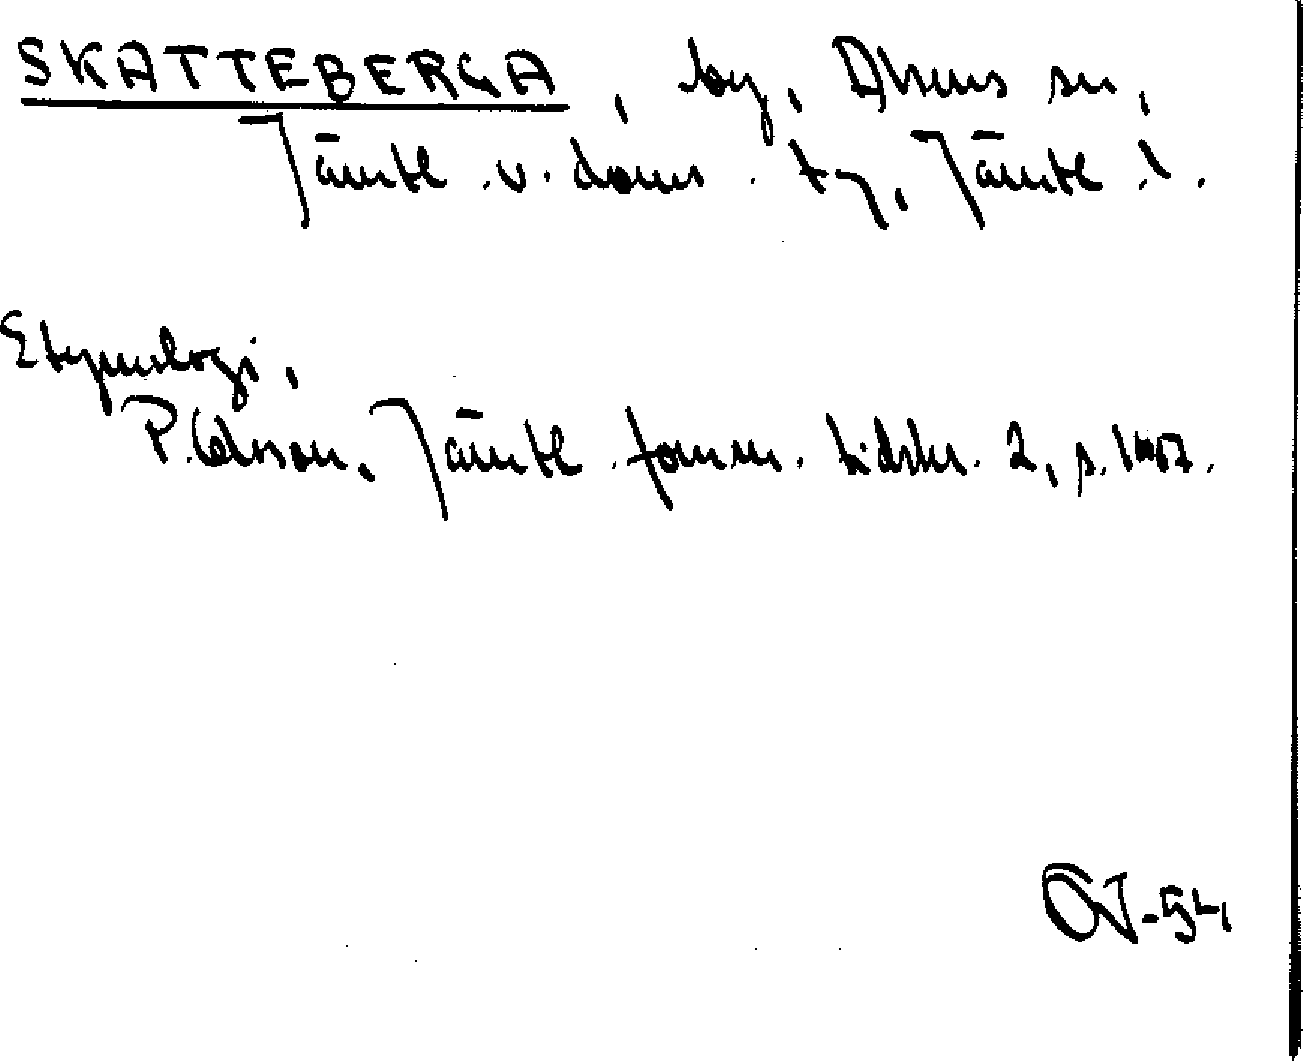 SKATTEBERGA, by, Ahrens sn,
Jämtl. v. doms. tg, Jämtl. l.
Etymologi,
P. Olsson, Jämtl. fornm. tidskr. 2, p. 107.
-54